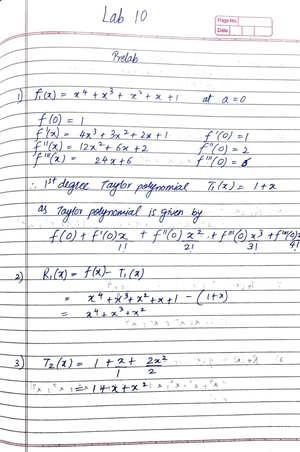 Lab 10
Page No.
Date
Prelab
1) f₁(x) = x⁴ + x³ + x² + x + 1 at a = 0
f(0) = 1
f'(x) = 4x³ + 3x² + 2x + 1 f'(0) = 1
f''(x) = 12x² + 6x + 2 f''(0) = 2
f'''(x) = 24x + 6 f'''(0) = 6
∴ 1st degree Taylor polynomial T₁(x) = 1 + x
as Taylor polynomial is given by
f(0) + f'(0)x/1! + f''(0)x²/2! + f'''(0)x³/3! + f''''(0)x/4!
2) R₁(x) = f(x) - T₁(x)
= x⁴ + x³ + x² + x + 1 - (1+x)
= x⁴ + x³ + x²
3) T₂(x) = 1 + x/1 + 2x²/2
= 1 + x + x²